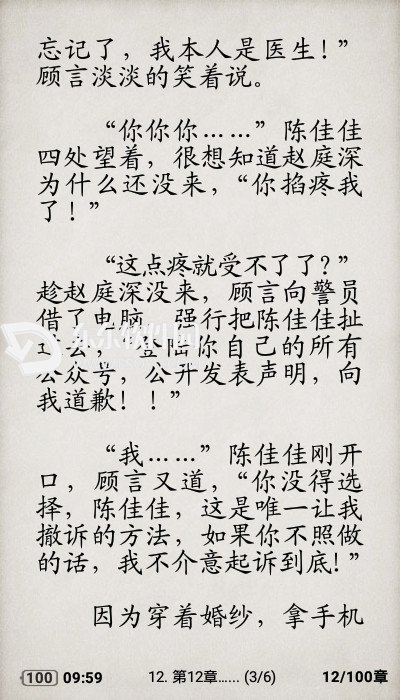 忘记了，我本人是医生！”
顾言淡淡的笑着说。
“你你你……”陈佳佳
四处望着，很想知道赵庭深
为什么还没来，“你掐疼我
了！”
“这点疼就受不了了？”
趁赵庭深没来，顾言向警员
借了电脑，强行把陈佳佳扯
过去，“登陆你自己的所有
公众号，公开发表声明，向
我道歉！！”
“我……”陈佳佳刚开
口，顾言又道，“你没得选
择，陈佳佳，这是唯一让我
撤诉的方法，如果你不照做
的话，我不介意起诉到底！”
因为穿着婚纱，拿手机
100 09:59 12. 第12章…… (3/6) 12/100章